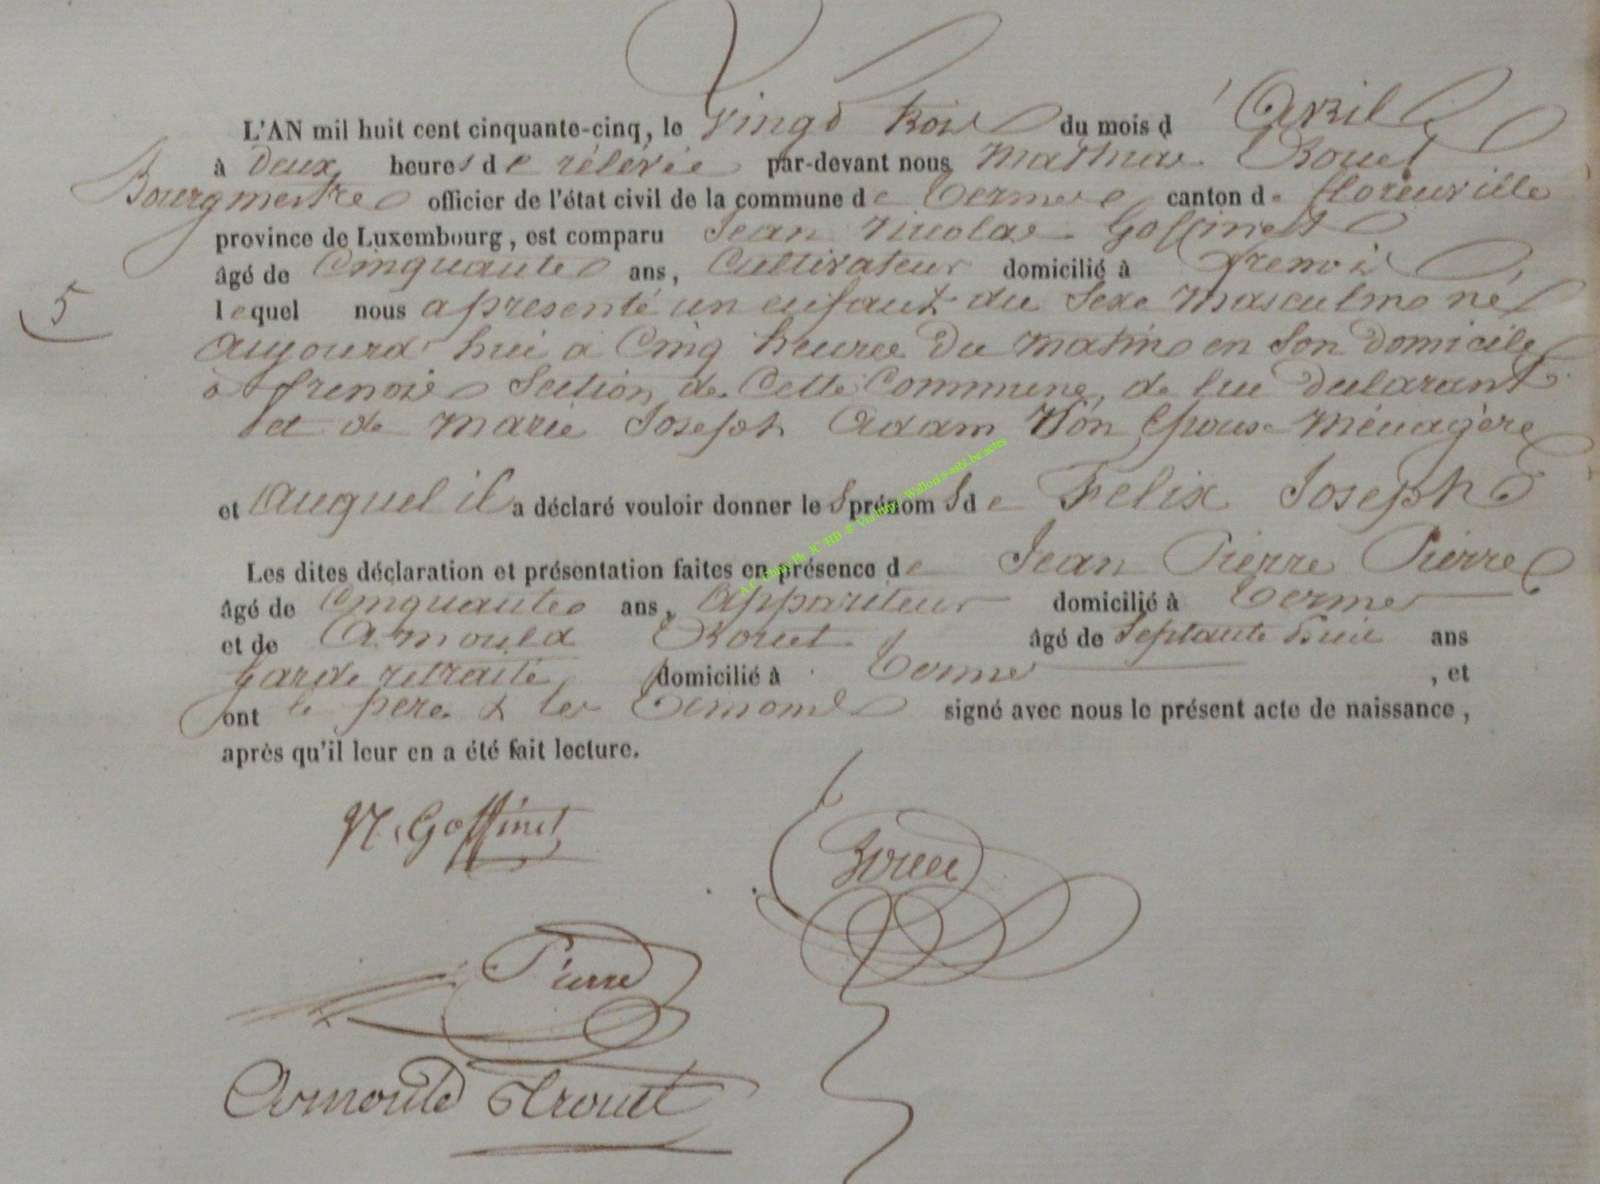 L'AN mil huit cent cinquante-cinq, le Vingt trois du mois d'Avril
à Deux heures de rélevée par-devant nous Mathias Rouet
Bourgmestre officier de l'état civil de la commune de Termes canton de florenville
province de Luxembourg, est comparu Jean Nicolas Goffinet
âgé de Cinquante ans, Cultivateur domicilié à frenois
5
lequel nous a présenté un enfant du Sexe Masculin né
aujourd'hui à Cinq heures Du matin en Son Domicile
à frenois Section de Cette Commune, de lui declarant
et de Marie Joseph Adam Son Epouse Ménagère
et auquel il a déclaré vouloir donner les prénoms de Felix Joseph
Les dites déclaration et présentation faites en présence de Jean Pierre Pierre
âgé de Cinquante ans, Appariteur domicilié à Termes
et de Arnould Rouet âgé de Septante huit ans
garde retraité domicilié à Termes, et
ont le père & les Temoins signé avec nous le présent acte de naissance,
après qu'il leur en a été fait lecture.
N. Goffinet
Rouet
Pierre
Arnould Rouet